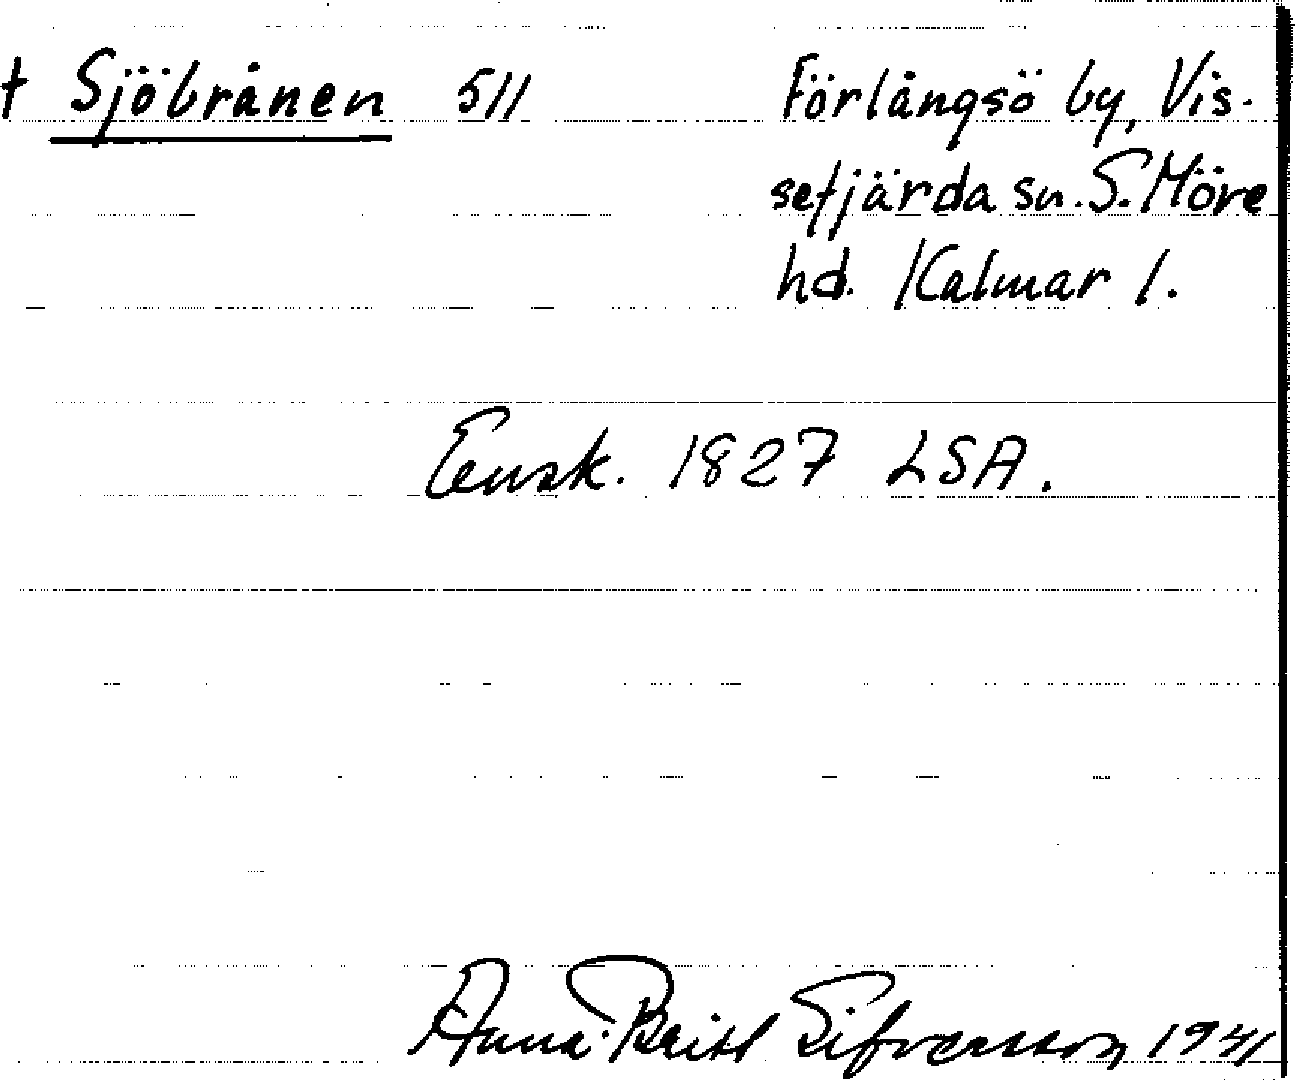 † Sjöbrånen 511 Förlångsö by, Vis-
sefjärda sn. S. Möre
hd. Kalmar l.
Ensk. 1827 LSA.
Anna-Britt Sifversson 1941